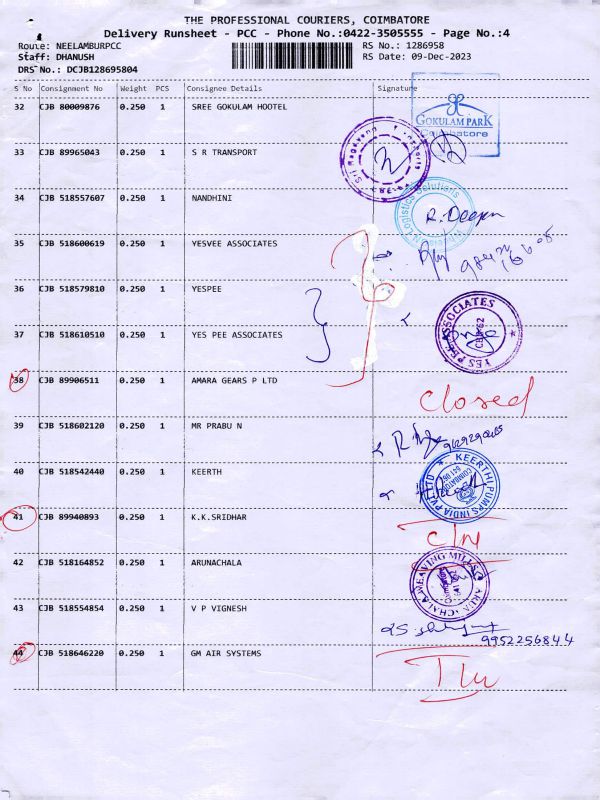 THE PROFESSIONAL COURIERS, COIMBATORE
Delivery Runsheet - PCC - Phone No.:0422-3505555 - Page No.:4
Route: NEELAMBURPCC
RS No.: 1286958
Staff: DHANUSH
RS Date: 09-Dec-2023
DRS No.: DCJB128695804
S No Consignment No Weight PCS Consignee Details Signature
32 CJB 80009876 0.250 1 SREE GOKULAM HOOTEL
GOKULAM PARK
Coimbatore
33 CJB 89965043 0.250 1 S R TRANSPORT
34 CJB 518557607 0.250 1 NANDHINI
Logistics Solutions
R. Deepa
35 CJB 518600619 0.250 1 YESVEE ASSOCIATES
36 CJB 518579810 0.250 1 YESPEE
37 CJB 518610510 0.250 1 YES PEE ASSOCIATES
YES PEE ASSOCIATES
38 CJB 89906511 0.250 1 AMARA GEARS P LTD
Closed
39 CJB 518602120 0.250 1 MR PRABU N
40 CJB 518542440 0.250 1 KEERTH
KEERTHI PUMPS INDIA PVT LTD
41 CJB 89940893 0.250 1 K.K.SRIDHAR
42 CJB 518164852 0.250 1 ARUNACHALA
ARUNACHALA WEAVING MILLS
43 CJB 518554854 0.250 1 V P VIGNESH
9952256844
44 CJB 518646220 0.250 1 GM AIR SYSTEMS